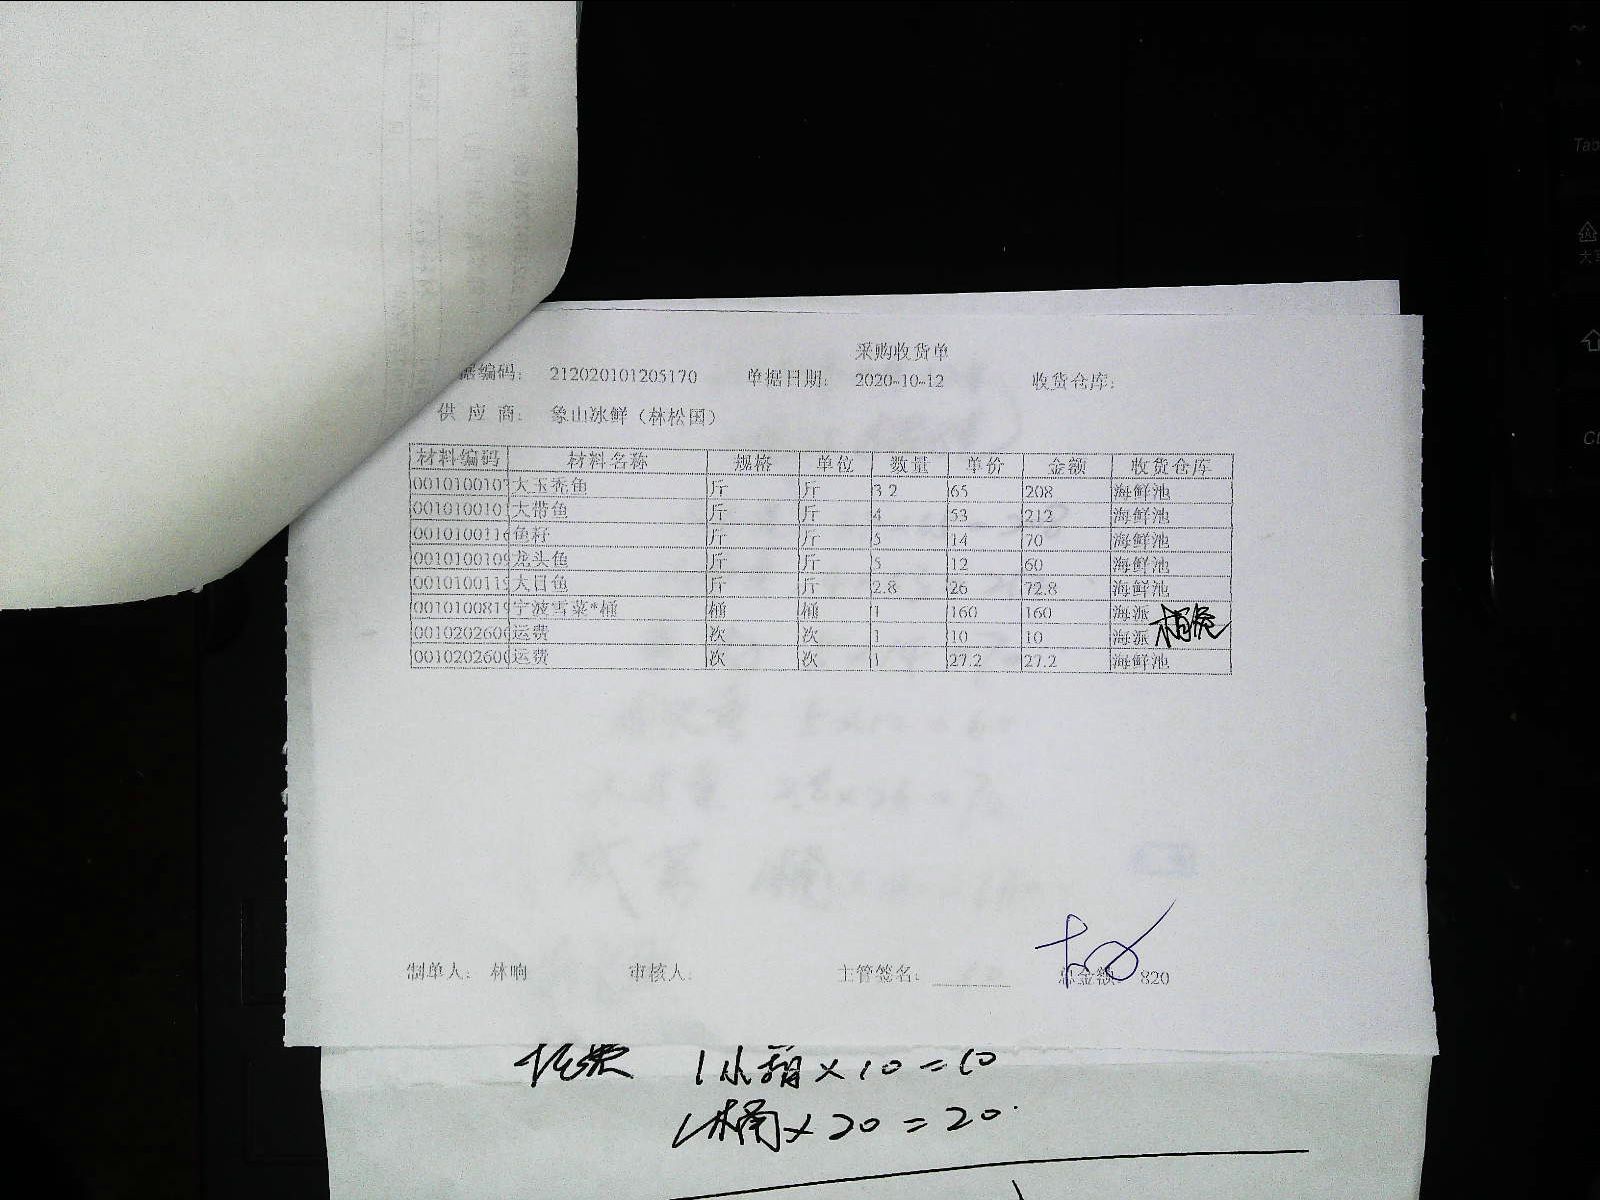 采购收货单
据编码: 212020101205170 单据日期: 2020-10-12 收货仓库:
供应商: 象山冰鲜（林松国）
材料编码 材料名称 规格 单位 数量 单价 金额 收货仓库
0010100107 大玉秃鱼 斤 斤 3.2 65 208 海鲜池
001010010 大带鱼 斤 斤 4 53 212 海鲜池
001010011 鱼籽 斤 斤 5 14 70 海鲜池
001010010 龙头鱼 斤 斤 5 12 60 海鲜池
001010011 大目鱼 斤 斤 2.8 26 72.8 海鲜池
001010081 宁波雪菜*桶 桶 桶 1 160 160 海派
001020260 运费 次 次 1 10 10 海派
001020260 运费 次 次 1 27.2 27.2 海鲜池
制单人: 林响 审核人: 主管签名: 总金额: 820
1小箱×10=10
1桶×20=20